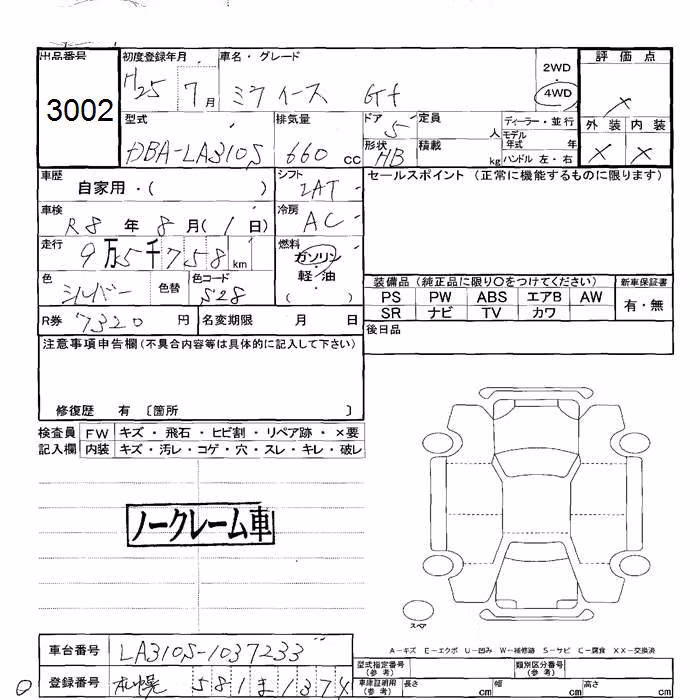 出品番号 初度登録年月 車名・グレード 評価点
3002 H25 7月 ミライース Gf 2WD 4WD ×
外装 内装
× ×
型式 排気量 ドア 5 定員 人 ディーラー・並行
DBA-LA310S 660 cc 形状 HB 積載 kg モデル年式 年
ハンドル 左・右
車歴 自家用・( ) シフト IAT セールスポイント (正常に機能するものに限ります)
車検 R8 年 8 月( 1 日) 冷房 AC
走行 9万5千758 km 燃料 ガソリン・軽・油 ( )
色 シルバー 色替 色コード S28
装備品 (純正品に限り○をつけてください) 新車保証書
PS PW ABS エアB AW 有・無
SR ナビ TV カワ
R券 7320 円 名変期限 月 日
後日品
注意事項申告欄(不具合内容等は具体的に記入して下さい)
修復歴 有 〔箇所 〕
検査員 FW キズ・飛石・ヒビ割・リペア跡・×要
記入欄 内装 キズ・汚レ・コゲ・穴・スレ・キレ・破レ
ノークレーム車
スペア
A−キズ E−エクボ U−凹み W−補修跡 S−サビ C−腐食 XX−交換済
車台番号 LA310S-1037233
登録番号 札幌 581 ま 1374
型式指定番号 (参考) 類別区分番号 (参考)
車庫証明用 (参考) 長さ cm 幅 cm 高さ cm